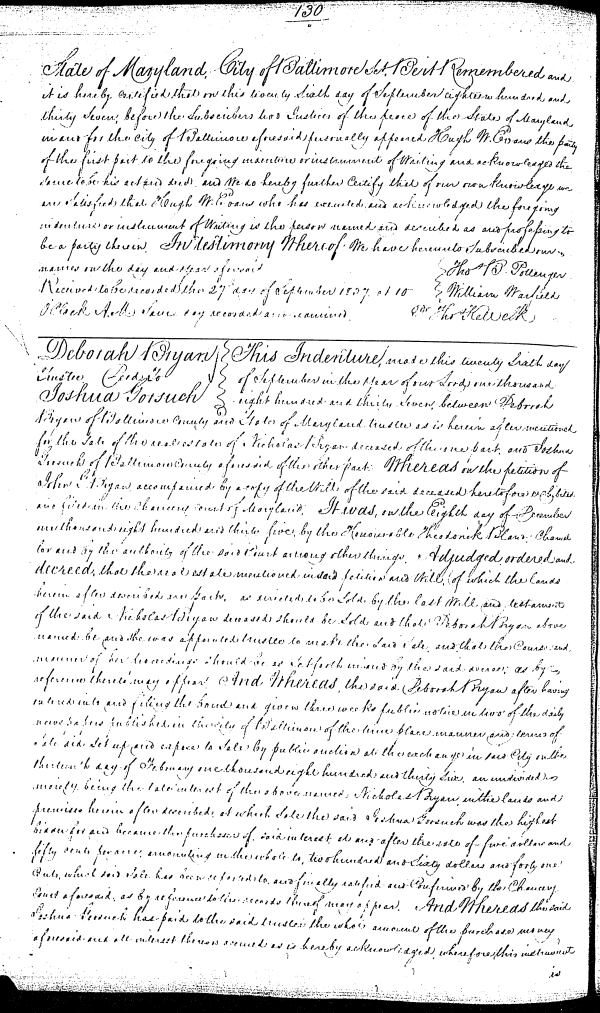 130
State of Maryland, City of Baltimore Sct, Be it Remembered and
it is hereby certified that on this twenty Sixth day of September eighteen hundred and
thirty Seven, before the Subscribers two Justices of the peace of the State of Maryland
in and for the city of Baltimore aforesaid personally appeared Hugh W. Evans the party
of the first part to the foregoing indenture or instrument of Writing and acknowledged the
same to be his act and deed, and We do hereby further Certify that of our own knowledge we
are Satisfied that Hugh W. Evans who has executed and acknowledged the foregoing
indenture or instrument of Writing is the person named and described as and professing to
be a party therein. In testimony Whereof We have hereunto Subscribed our
names on the day and year aforesaid
Tho B. Pottenger
Received to be recorded the 27th day of September 1837 at 10
William Warfield
O'Clock A.M. Same day recorded and examined
Deborah Bryan
Trustee Deed to
Joshua Gorsuch
This Indenture, made this twenty Sixth day
of September in the year of our Lord, one thousand
eight hundred and thirty Seven, between Deborah
Bryan of Baltimore County and State of Maryland trustee as is herein after mentioned
for the Sale of the real estate of Nicholas Bryan deceased of the one part, and Joshua
Gorsuch of Baltimore County aforesaid of the other part. Whereas on the petition of
John Bryan, accompanied by a copy of the Will of the said deceased heretofore exhibited
and filed in the Chancery Court of Maryland, It was, on the Eighth day of December
one thousand eight hundred and thirty five, by the Honourable Theodorick Bland, Chancel
lor and by the authority of the said Court among other things, Adjudged ordered and
decreed, that the real estate mentioned in said petition and Will, of which the lands
herein after described are parts, as directed to be Sold by the last Will and testament
of the said Nicholas Bryan deceased should be Sold and that Deborah Bryan above
named be and she was appointed trustee to make the said Sale, and that the Course and
manner of her proceedings should be as Set forth in and by the said decree; as by
reference thereto may appear. And Whereas, the said Deborah Bryan after having
entered into and filing the bond and given three weeks public notice in two of the daily
news papers published in the City of Baltimore of the time place manner and terms of
Sale did Set up and expose to Sale by public auction at the exchange in said City on the
thirteenth day of February one thousand eight hundred and thirty Six, an undivided
moiety being the late interest of the above named Nicholas Bryan, in the lands and
premises herein after described, at which Sale the said Joshua Gorsuch was the highest
bidder for and became the purchaser of said interest at and after the rate of five dollars and
fifty cents per acre, amounting in the whole to, two hundred and Sixty dollars and forty one
Cents, which said Sale has been reported to, and finally ratified and Confirmed by the Chancery
Court aforesaid, as by reference to the records thereof may appear. And Whereas the said
Joshua Gorsuch has paid to the said trustee the whole amount of the purchase money
aforesaid and all interest thereon accrued as is hereby acknowledged, wherefore this instrument
is